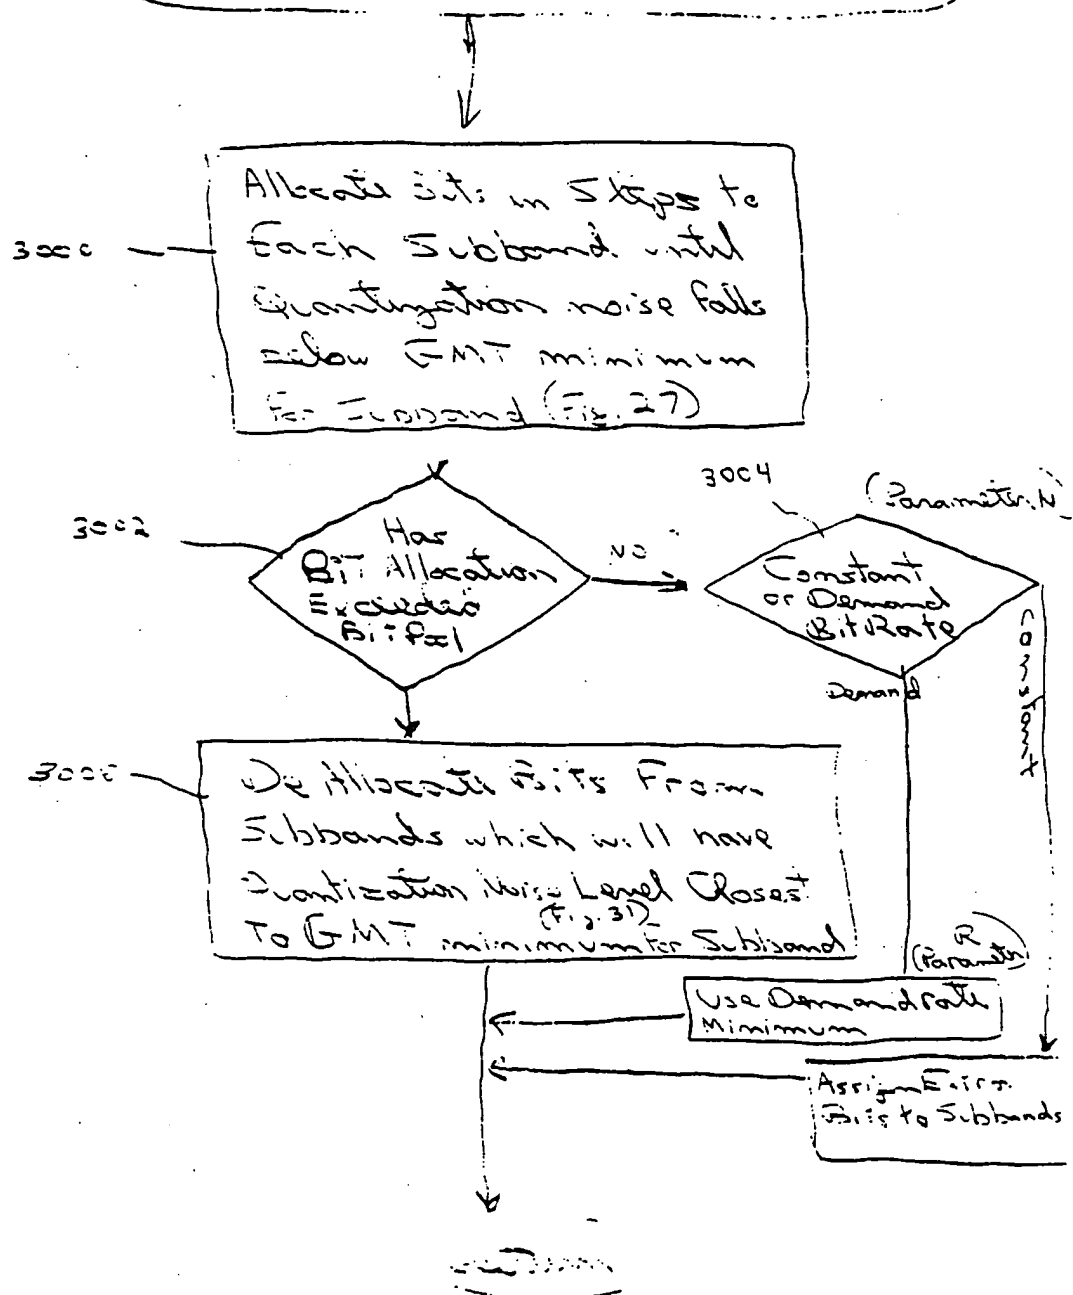 3000
Allocate Bits in Steps to
Each Subband until
Quantization noise falls
below GMT minimum
for Subband (Fig. 27)
3002
Has
Bit Allocation
Exceeded
Bit Pool
NO
3004
(Parameter N)
Constant
or Demand
Bit Rate
Demand
Constant
De Allocate Bits From
Subbands which will have
Quantization Noise Level Closest
(Fig. 31)
To GMT minimum for Subband
R
(Parameter)
Use Demand rate
Minimum
Assign Extra
Bits to Subbands